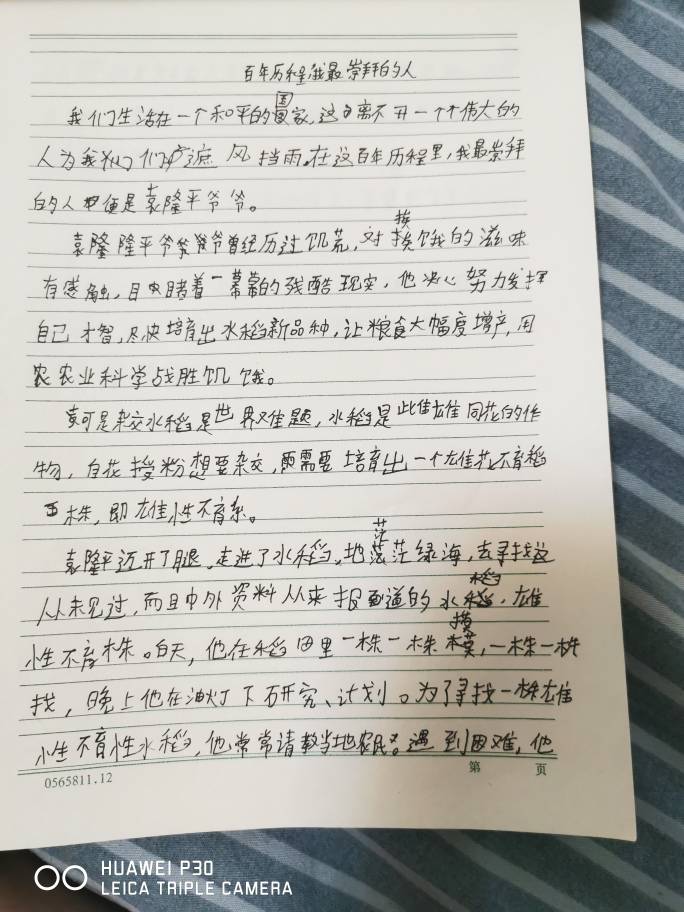 百年历程我最崇拜的人
我们生活在一个和平的国家,这离不开一个个伟大的
人为我们们遮风挡雨。在这百年历程里,我最崇拜
的人便是袁隆平爷爷。
袁隆隆平爷爷曾经历过饥荒,对挨饿的滋味
有感触,目睹着一幕幕的残酷现实,他决心努力发挥
自己才智,尽快培育出水稻新品种,让粮食大幅度增产,用
农农业科学战胜饥饿。
可是杂交水稻是世界难题,水稻是雌雄同花的作
物,自花授粉想要杂交,需要培育出一个雄花不育稻
株,即雄性不育系。
袁隆平迈开了腿,走进了水稻。地茫茫绿海,去寻找这
从未见过,而且中外资料从来报道的水稻,雄
性不育株。白天,他在稻田里一株一株摸,一株一株
找,晚上他在油灯下研究、计划。为了寻找一株雄
性不育性水稻,他常常请教当地农民。遇到困难,他
0565811.12
第 页
HUAWEI P30
LEICA TRIPLE CAMERA